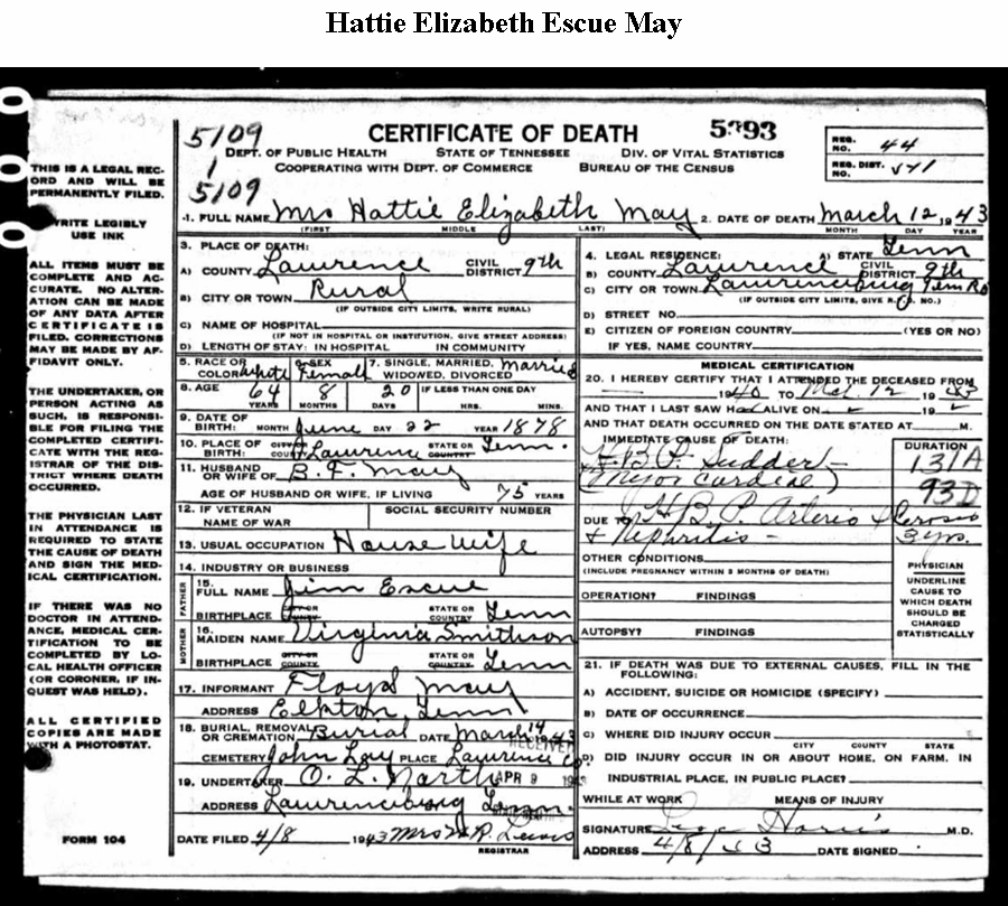 Hattie Elizabeth Escue May
5109 CERTIFICATE OF DEATH 5393
1 DEPT. OF PUBLIC HEALTH STATE OF TENNESSEE DIV. OF VITAL STATISTICS
COOPERATING WITH DEPT. OF COMMERCE BUREAU OF THE CENSUS
5109
REG. NO. 44
REG. DIST. NO.
THIS IS A LEGAL REC-
ORD AND WILL BE
PERMANENTLY FILED.
WRITE LEGIBLY
USE INK
ALL ITEMS MUST BE
COMPLETE AND AC-
CURATE. NO ALTER-
ATION CAN BE MADE
OF ANY DATA AFTER
CERTIFICATE IS
FILED. CORRECTIONS
MAY BE MADE BY AF-
FIDAVIT ONLY.
THE UNDERTAKER, OR
PERSON ACTING AS
SUCH, IS RESPONSI-
BLE FOR FILING THE
COMPLETED CERTIFI-
CATE WITH THE REG-
ISTRAR OF THE DIS-
TRICT WHERE DEATH
OCCURRED.
THE PHYSICIAN LAST
IN ATTENDANCE IS
REQUIRED TO STATE
THE CAUSE OF DEATH
AND SIGN THE MED-
ICAL CERTIFICATION.
IF THERE WAS NO
DOCTOR IN ATTEND-
ANCE, MEDICAL CER-
TIFICATION TO BE
COMPLETED BY LO-
CAL HEALTH OFFICER
(OR CORONER, IF IN-
QUEST WAS HELD).
ALL CERTIFIED
COPIES ARE MADE
WITH A PHOTOSTAT.
FORM 104
1. FULL NAME Mrs Hattie Elizabeth May 2. DATE OF DEATH March 12, 1943
(FIRST MIDDLE LAST) MONTH DAY YEAR
3. PLACE OF DEATH:
A) COUNTY Lawrence CIVIL DISTRICT 9th
B) CITY OR TOWN Rural
(IF OUTSIDE CITY LIMITS, WRITE RURAL)
C) NAME OF HOSPITAL
(IF NOT IN HOSPITAL OR INSTITUTION, GIVE STREET ADDRESS)
D) LENGTH OF STAY: IN HOSPITAL IN COMMUNITY
4. LEGAL RESIDENCE: A) STATE Tenn
B) COUNTY Lawrence CIVIL DISTRICT 9th
C) CITY OR TOWN Lawrenceburg Tenn
(IF OUTSIDE CITY LIMITS, GIVE R.F.D. NO.)
D) STREET NO.
E) CITIZEN OF FOREIGN COUNTRY (YES OR NO)
IF YES, NAME COUNTRY
5. RACE OR COLOR White 6. SEX Female 7. SINGLE, MARRIED, WIDOWED, DIVORCED Married
8. AGE 64 8 20 IF LESS THAN ONE DAY
YEARS MONTHS DAYS HRS. MINS.
9. DATE OF BIRTH: MONTH June DAY 22 YEAR 1878
10. PLACE OF BIRTH: CITY OR COUNTY Lawrence STATE OR COUNTRY Tenn.
11. HUSBAND OR WIFE OF B. F. May
AGE OF HUSBAND OR WIFE, IF LIVING 75 YEARS
12. IF VETERAN NAME OF WAR SOCIAL SECURITY NUMBER
13. USUAL OCCUPATION House wife
14. INDUSTRY OR BUSINESS
FATHER
15. FULL NAME Jim Escue
BIRTHPLACE CITY OR COUNTY STATE OR COUNTRY Tenn
MOTHER
16. MAIDEN NAME Virginia Smithson
BIRTHPLACE CITY OR COUNTY STATE OR COUNTRY Tenn
17. INFORMANT Floyd May
ADDRESS Elkton, Tenn
18. BURIAL, REMOVAL OR CREMATION Burial DATE March 14 1943
RECEIVED
CEMETERY John Lay PLACE Lawrence Co
19. UNDERTAKER O. L. North APR 9
ADDRESS Lawrenceburg Tenn.
DATE FILED 4/8 1943 Mrs
REGISTRAR
MEDICAL CERTIFICATION
20. I HEREBY CERTIFY THAT I ATTENDED THE DECEASED FROM
1940 TO Mch. 12 1943
AND THAT I LAST SAW H ALIVE ON 19
AND THAT DEATH OCCURRED ON THE DATE STATED AT M.
IMMEDIATE CAUSE OF DEATH: DURATION
H.B.P. Sudder - 131A
(Myocardeal) 93D
DUE TO H.B.P. Arterio
& Nephritis - 3 yrs.
OTHER CONDITIONS
(INCLUDE PREGNANCY WITHIN 3 MONTHS OF DEATH)
OPERATION? FINDINGS
AUTOPSY? FINDINGS
PHYSICIAN
UNDERLINE
CAUSE TO
WHICH DEATH
SHOULD BE
CHARGED
STATISTICALLY
21. IF DEATH WAS DUE TO EXTERNAL CAUSES, FILL IN THE
FOLLOWING:
A) ACCIDENT, SUICIDE OR HOMICIDE (SPECIFY)
B) DATE OF OCCURRENCE
C) WHERE DID INJURY OCCUR
CITY COUNTY STATE
D) DID INJURY OCCUR IN OR ABOUT HOME, ON FARM, IN
INDUSTRIAL PLACE, IN PUBLIC PLACE?
WHILE AT WORK MEANS OF INJURY
SIGNATURE Harris M.D.
ADDRESS 4/8/43 DATE SIGNED